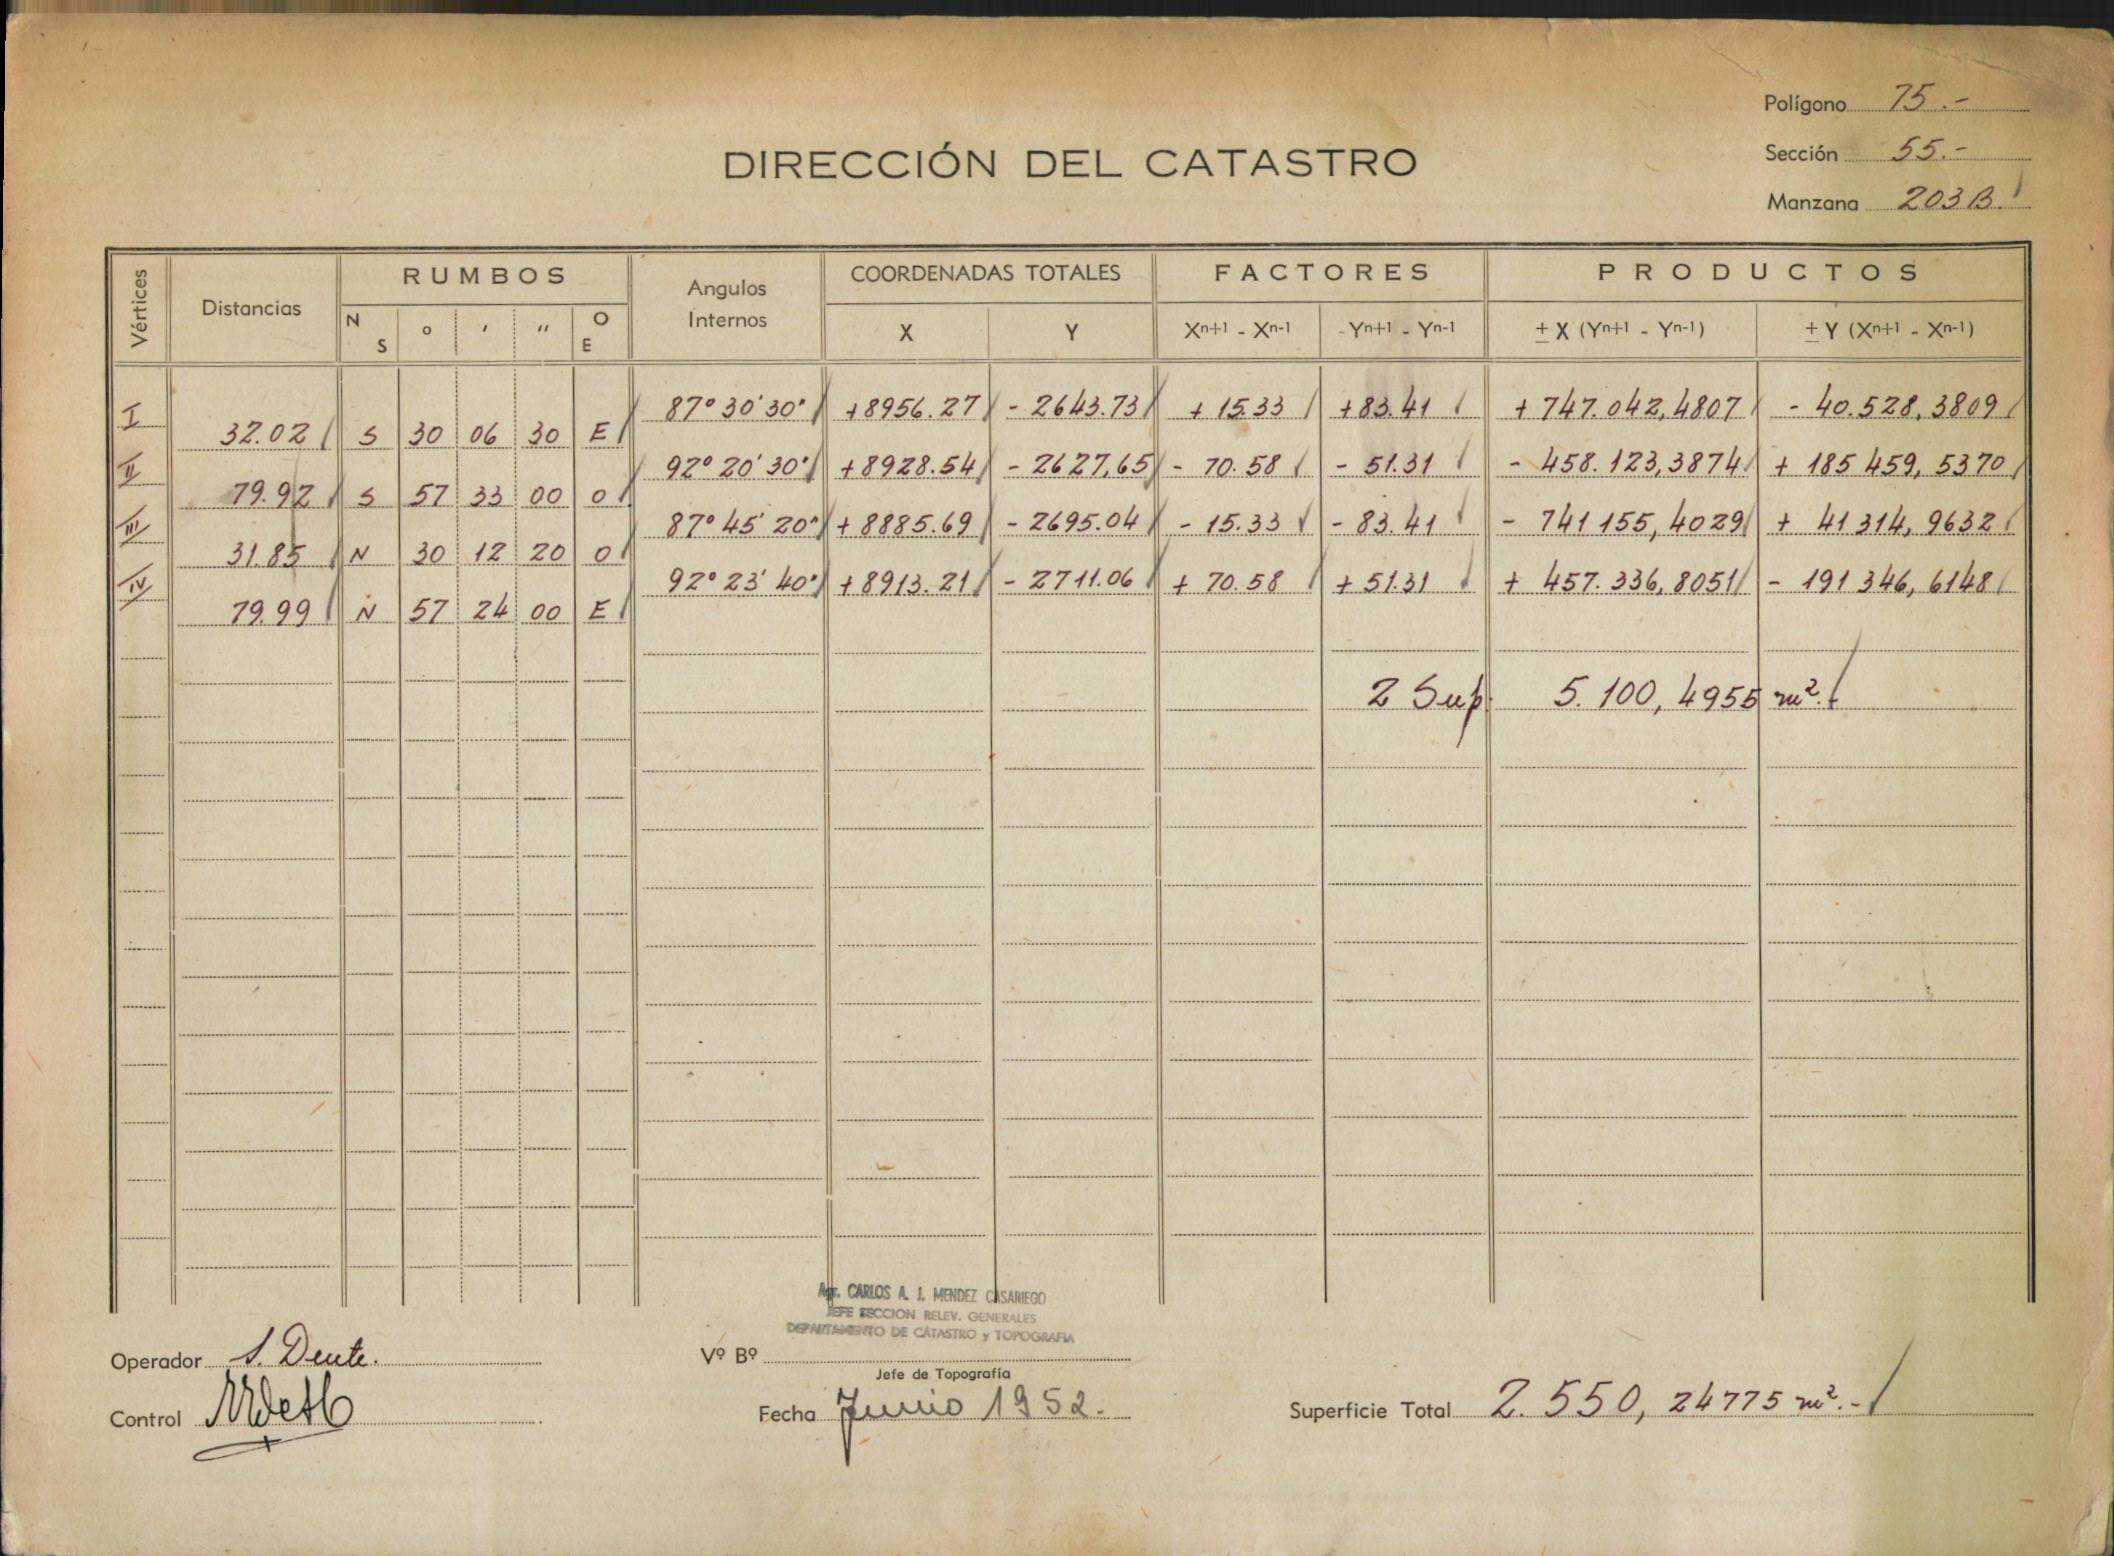 Polígono 75.-
DIRECCIÓN DEL CATASTRO
Sección 55.-
Manzana 203 B.
Vértices Distancias RUMBOS Angulos Internos COORDENADAS TOTALES FACTORES PRODUCTOS
N S ° ' '' O E X Y Xn+1 - Xn-1 Yn+1 - Yn-1 ± X (Yn+1 - Yn-1) ± Y (Xn+1 - Xn-1)
I 87° 30' 30" +8956.27 - 2643.73 + 15.33 +83.41 + 747.042,4807 - 40.528,3809
32.02 S 30 06 30 E
II 92° 20' 30" +8928.54 - 2627,65 - 70.58 - 51.31 - 458.123,3874 + 185 459, 5370
79.92 S 57 33 00 O
III 87° 45' 20" + 8885.69 - 2695.04 - 15.33 - 83.41 - 741 155,4029 + 41 314, 9632
31.85 N 30 12 20 O
IV 92° 23' 40" + 8913.21 - 2711.06 + 70.58 + 51.31 + 457.336,8051 - 191 346, 6148
79.99 N 57 24 00 E
2 Sup. 5.100, 4955 m².
Agr. CARLOS A. J. MENDEZ CASARIEGO
JEFE SECCION RELEV. GENERALES
DEPARTAMENTO DE CATASTRO y TOPOGRAFIA
Operador S. Dente.
Vº Bº
Jefe de Topografía
Control
Fecha Junio 1952.-
Superficie Total 2.550, 24775 m².-